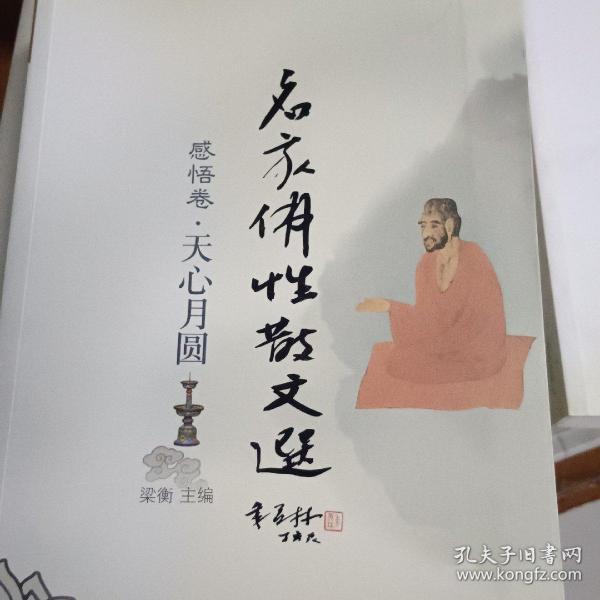 名家修性散文選
感悟卷·天心月圆
梁衡 主编
季羡林
孔夫子旧书网
www.kongfz.com